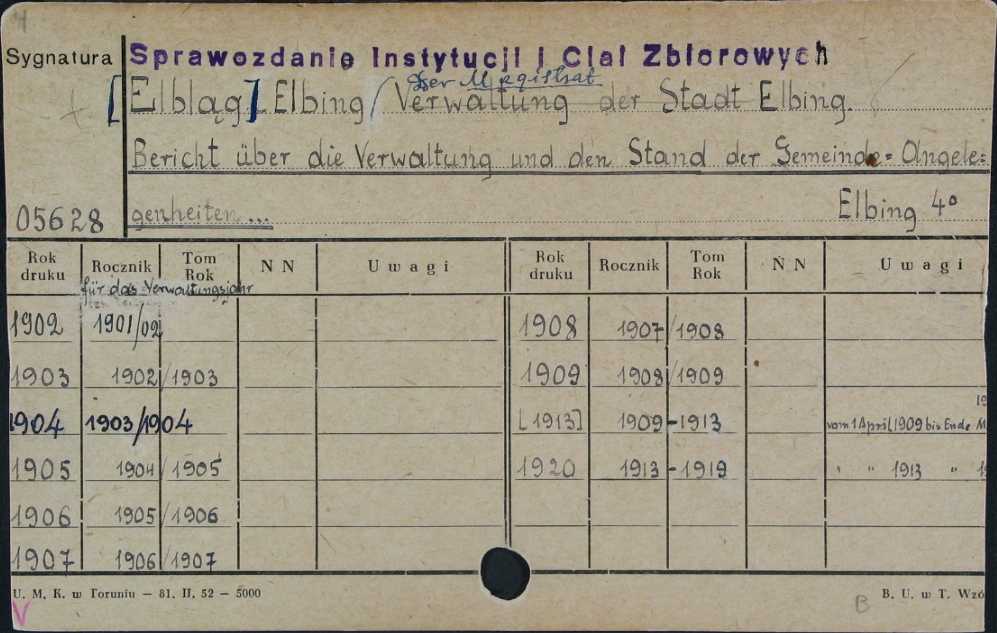 Sygnatura Sprawozdanie Instytucji i Ciał Zbiorowych
Der Magistrat
[Elbląg] Elbing / Verwaltung der Stadt Elbing.
Bericht über die Verwaltung und den Stand der Gemeinde= Angele=
05628 genheiten... Elbing 4°
Rok druku Rocznik Tom Rok N N U w a g i Rok druku Rocznik Tom Rok N N U w a g i
für das Verwaltungsjahr
1902 1901/02 1908 1907/1908
1903 1902/1903 1909 1908/1909
1904 1903/1904 [1913] 1909-1913 vom 1 April 1909 bis Ende M
1905 1904/1905 1920 1913-1919 " " 1913 "
1906 1905/1906
1907 1906/1907
U. M. K. w Toruniu — 81. II. 52 — 5000 B. U. w T. Wzó
V B